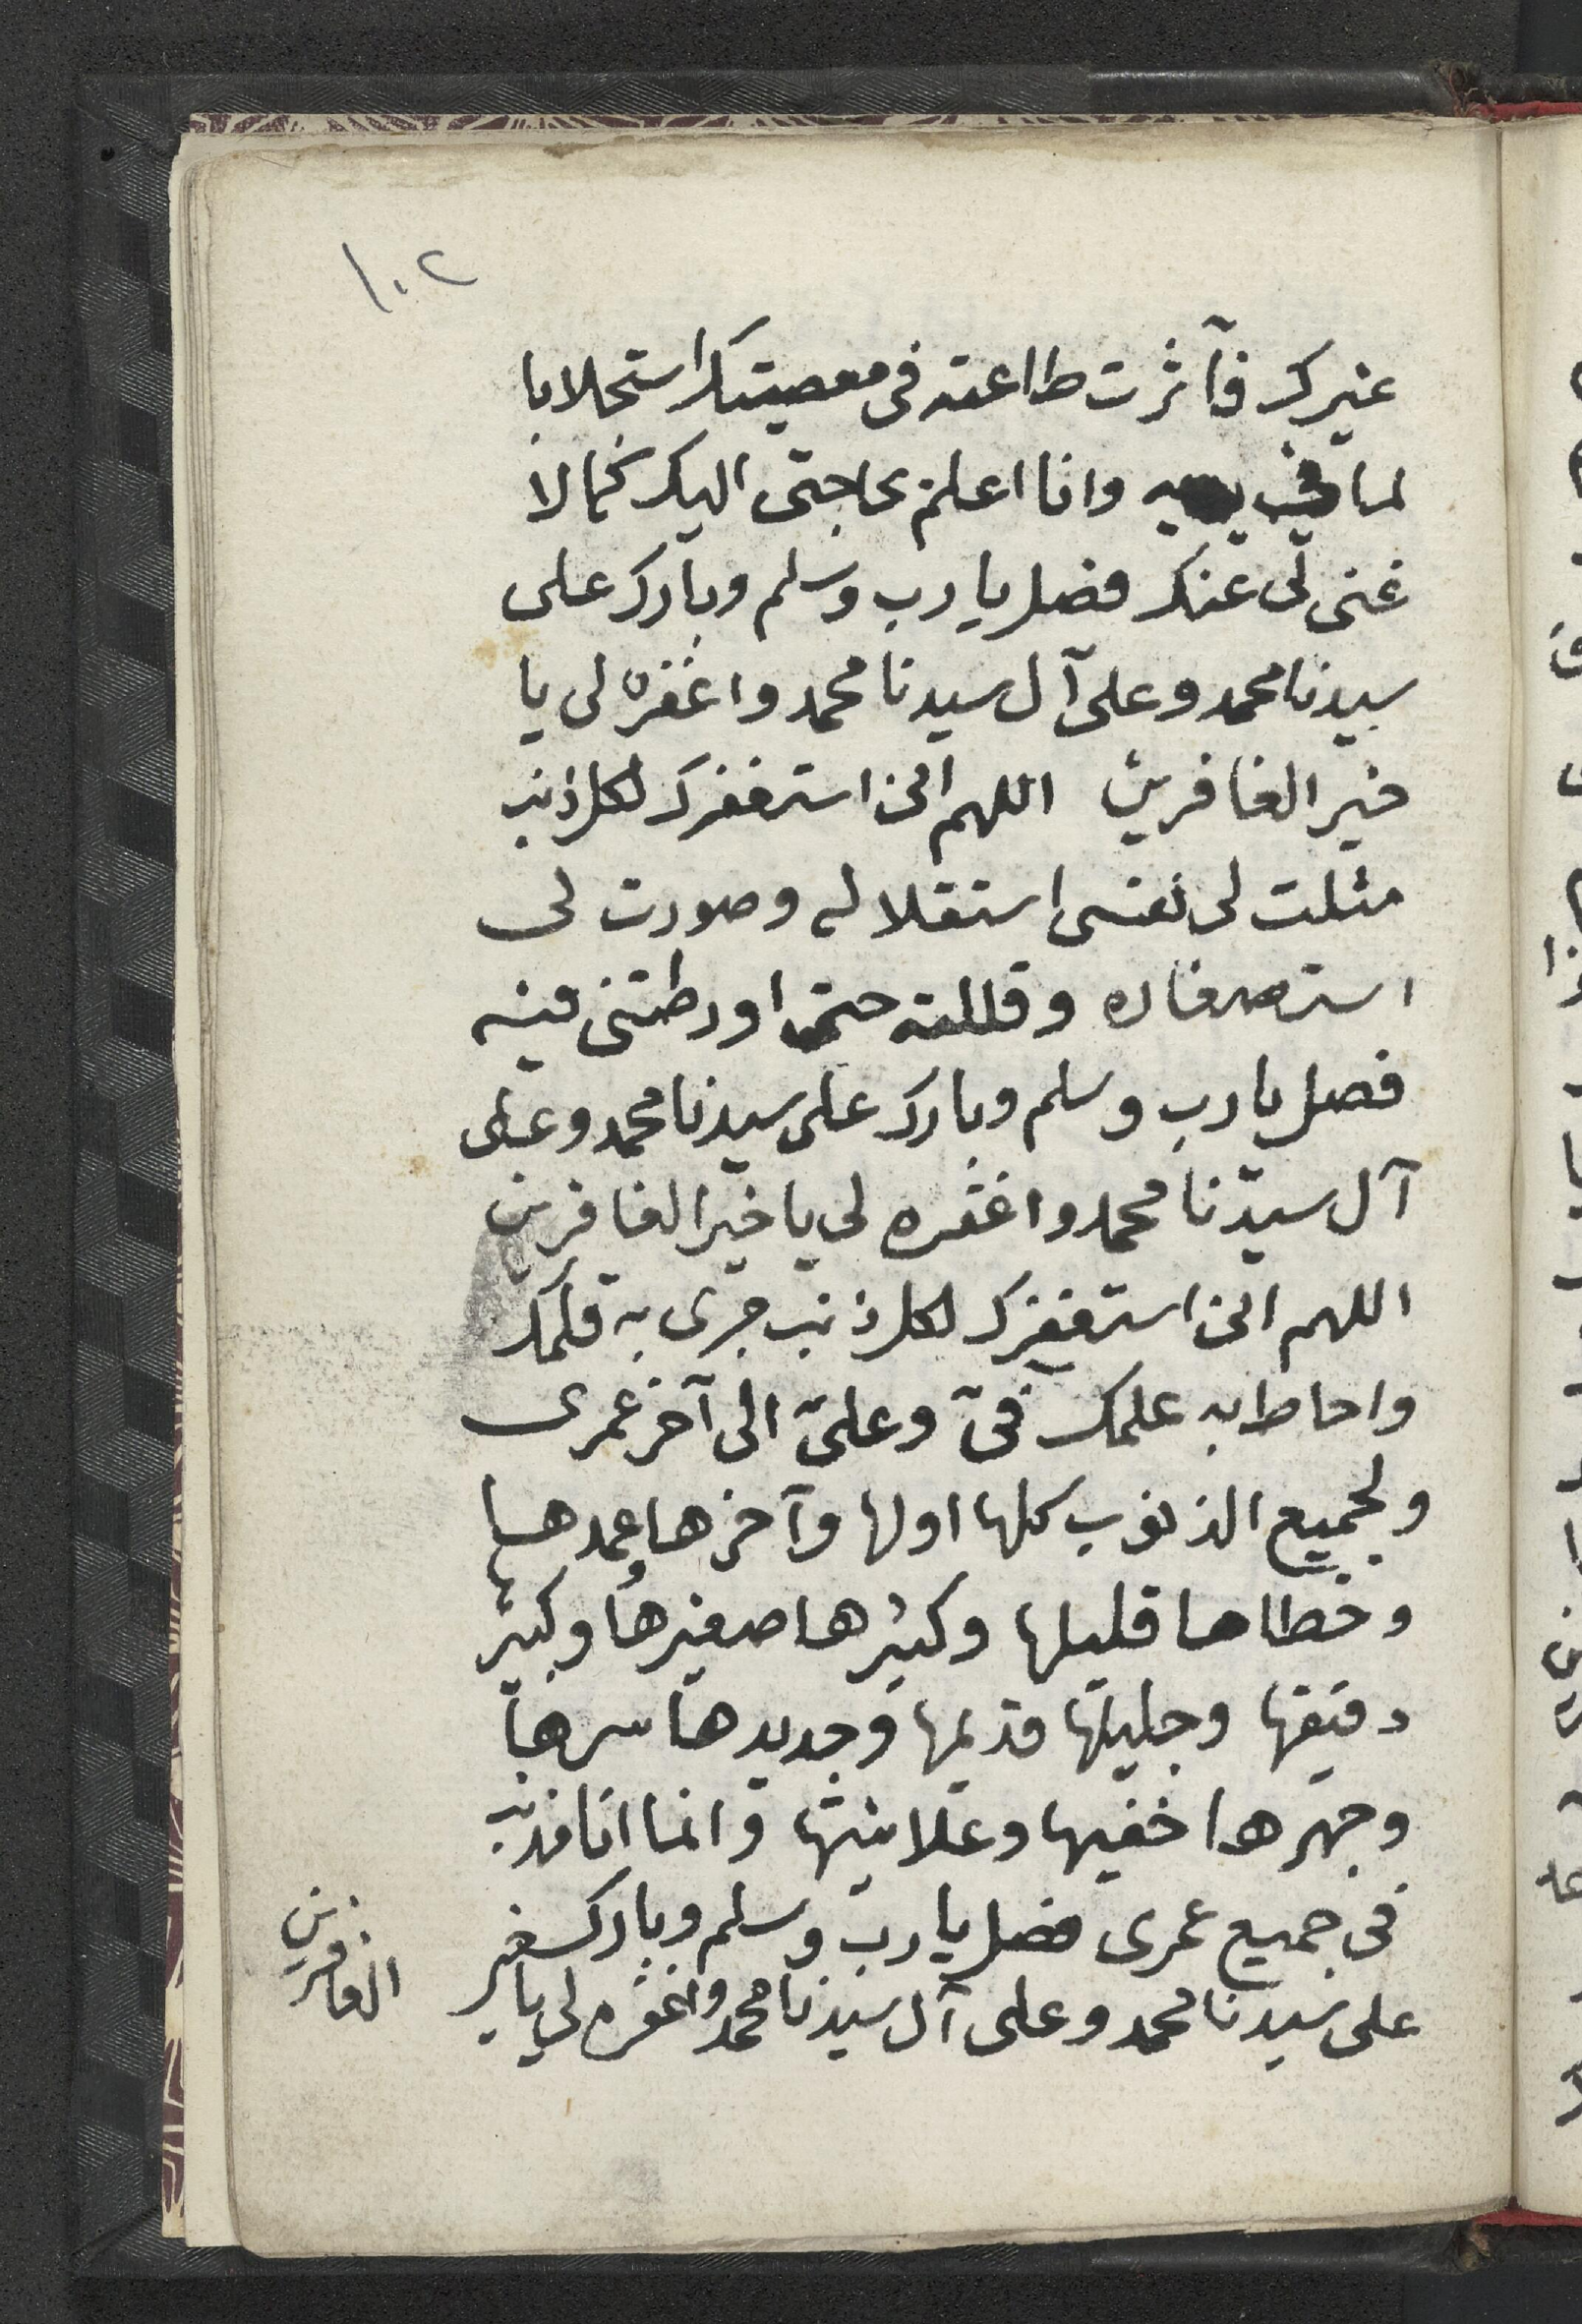 ١٠٢
غيرك فآثرت طاعته فى معصيتك استجلابا
لما فى يديه وانا اعلم بحاجتى اليك كما لا
غنى لى عنك فصل يا رب وسلم وبارك على
سيدنا محمد وعلى آل سيدنا محمد واغفره لى يا
خير الغافرين اللهم انى استغفرك لكل ذنب
مثلت لى نفسى استقلاله وصورت لى
استصغاره وقللته حتى اورطتنى فيه
فصل يا رب وسلم وبارك على سيدنا محمد وعلى
آل سيدنا محمد واغفره لى يا خير الغافرين
اللهم انى استغفرك لكل ذنب جرى به قلمك
واحاط به علمك فىّ وعلىّ الى آخر عمرى
ولجميع الذنوب كلها اولها وآخرها عمدها
وخطاها قليلها وكثيرها صغيرها وكبير
دقيقها وجليلها قديمها وجديدها سرها
وجهرها خفيها وعلانيتها وانما انا مذنب
فى جميع عمرى فصل يا رب وسلم وبارك
على سيدنا محمد وعلى آل سيدنا محمد واغفره لى يا خير
الغافرين